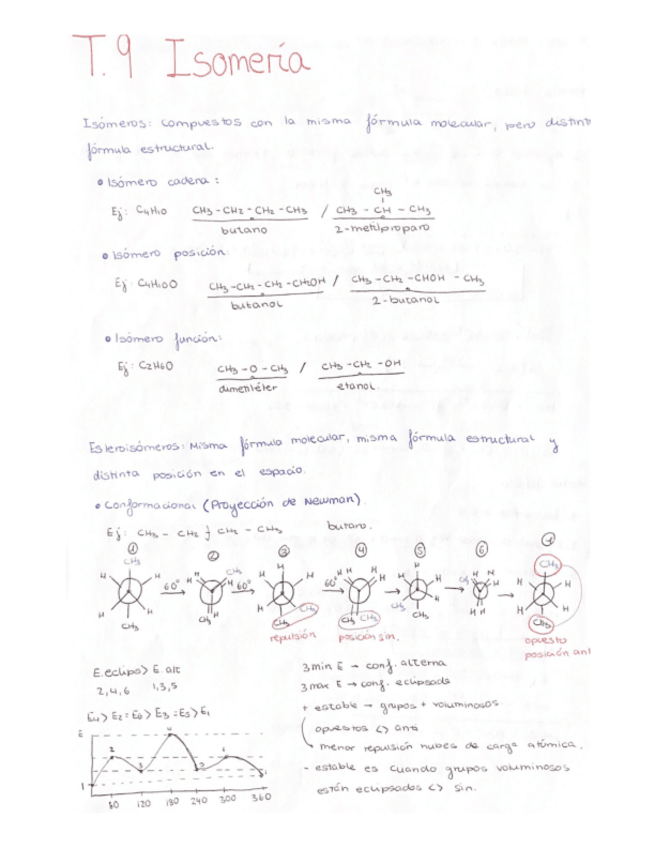 T.9 Isomería
Isómeros: compuestos con la misma fórmula molecular, pero distint
fórmula estructural.
• Isómero cadena:
CH3
Ej: C4H10 CH3 - CH2 - CH2 - CH3 / CH3 - CH - CH3
butano 2-metilpropano
• Isómero posición:
Ej: C4H10O CH3 - CH2 - CH2 - CH2OH / CH3 - CH2 - CHOH - CH3
butanol 2-butanol
• Isómero función:
Ej: C2H6O CH3 - O - CH3 / CH3 - CH2 - OH
dimetiléter etanol
Esteroisómeros: Misma fórmula molecular, misma fórmula estructural y
distinta posición en el espacio.
• Conformacional (Proyección de Newman)
Ej: CH3 - CH2 - CH2 - CH3 butano.
① ② ③ ④ ⑤ ⑥
CH3 CH3 H H H H CH3
H H H H H H
60° 60° 60°
H H H H H H
CH3 CH3 CH3 CH3 CH3 CH3
repulsión posición sin. opuesto
posición ant
E.eclips > E.alt
2,4,6 1,3,5
E4 > E2 = E6 > E3 = E5 > E1
3 min E → conf. alterna
3 max E → conf. eclipsada
+ estable → grupos + voluminosos
opuestos <> anti
menor repulsión nubes de carga atómica.
- estable es cuando grupos voluminosos
están eclipsados <> sin.
E
1 2 3 4 5 6 1
60 120 180 240 300 360